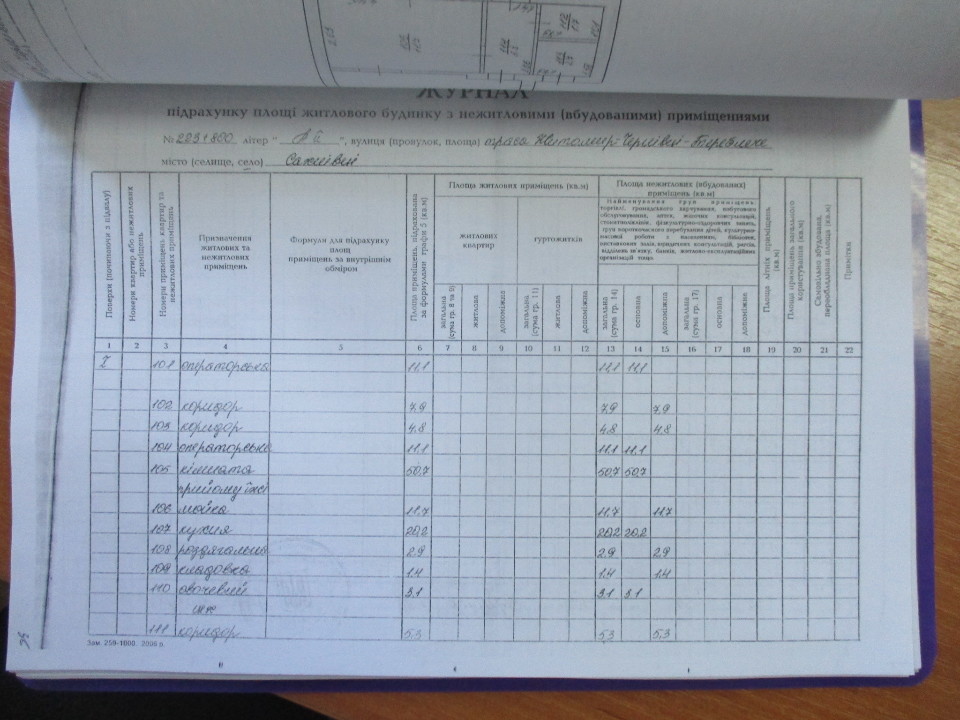 ЖУРНАЛ
підрахунку площі житлового будинку з нежитловими (вбудованими) приміщеннями
літер " ", вулиця (провулок, площа) траса Житомир-Чернівці-
місто (селище, село)
Поверхи (починаючи з підвалу)
Номери квартир або нежитлових приміщень
Номери приміщень квартир та нежитлових приміщень
Призначення житлових та нежитлових приміщень
Формули для підрахунку площ приміщень за внутрішнім обміром
Площа приміщень, підрахована за формулами графи 5 (кв.м)
Площа житлових приміщень (кв.м)
житлових квартир
гуртожитків
загальна (сума гр. 8 та 9)
житлова
допоміжна
загальна (сума гр. 11)
житлова
допоміжна
Площа нежитлових (вбудованих) приміщень (кв.м)
Найменування груп приміщень:
загальна (сума гр. 14)
основна
допоміжна
загальна (сума гр. 17)
основна
допоміжна
Площа літніх приміщень (кв.м)
Площа приміщень загального користування (кв.м)
Самовільно збудована, переобладнана площа (кв.м)
Примітки
1 2 3 4 5 6 7 8 9 10 11 12 13 14 15 16 17 18 19 20 21 22
I 101 операторська 11,1 11,1 11,1
102 коридор 7,9 7,9 7,9
103 коридор 4.8 4.8 4.8
104 операторська 11.1 11.1 11.1
105 кімната 50,7 50,7 50,7
прийому їжі
106 мойка 11,7 11,7 11,7
107 кухня 20,2 20,2 20,2
108 роздягальня 2.9 2.9 2.9
109 кладовка 1.4 1.4 1.4
110 овочевий 3,1 3,1 3,1
цех
111 коридор 5,3 5,3 5,3
Зам. 259-1800. 2006 р.